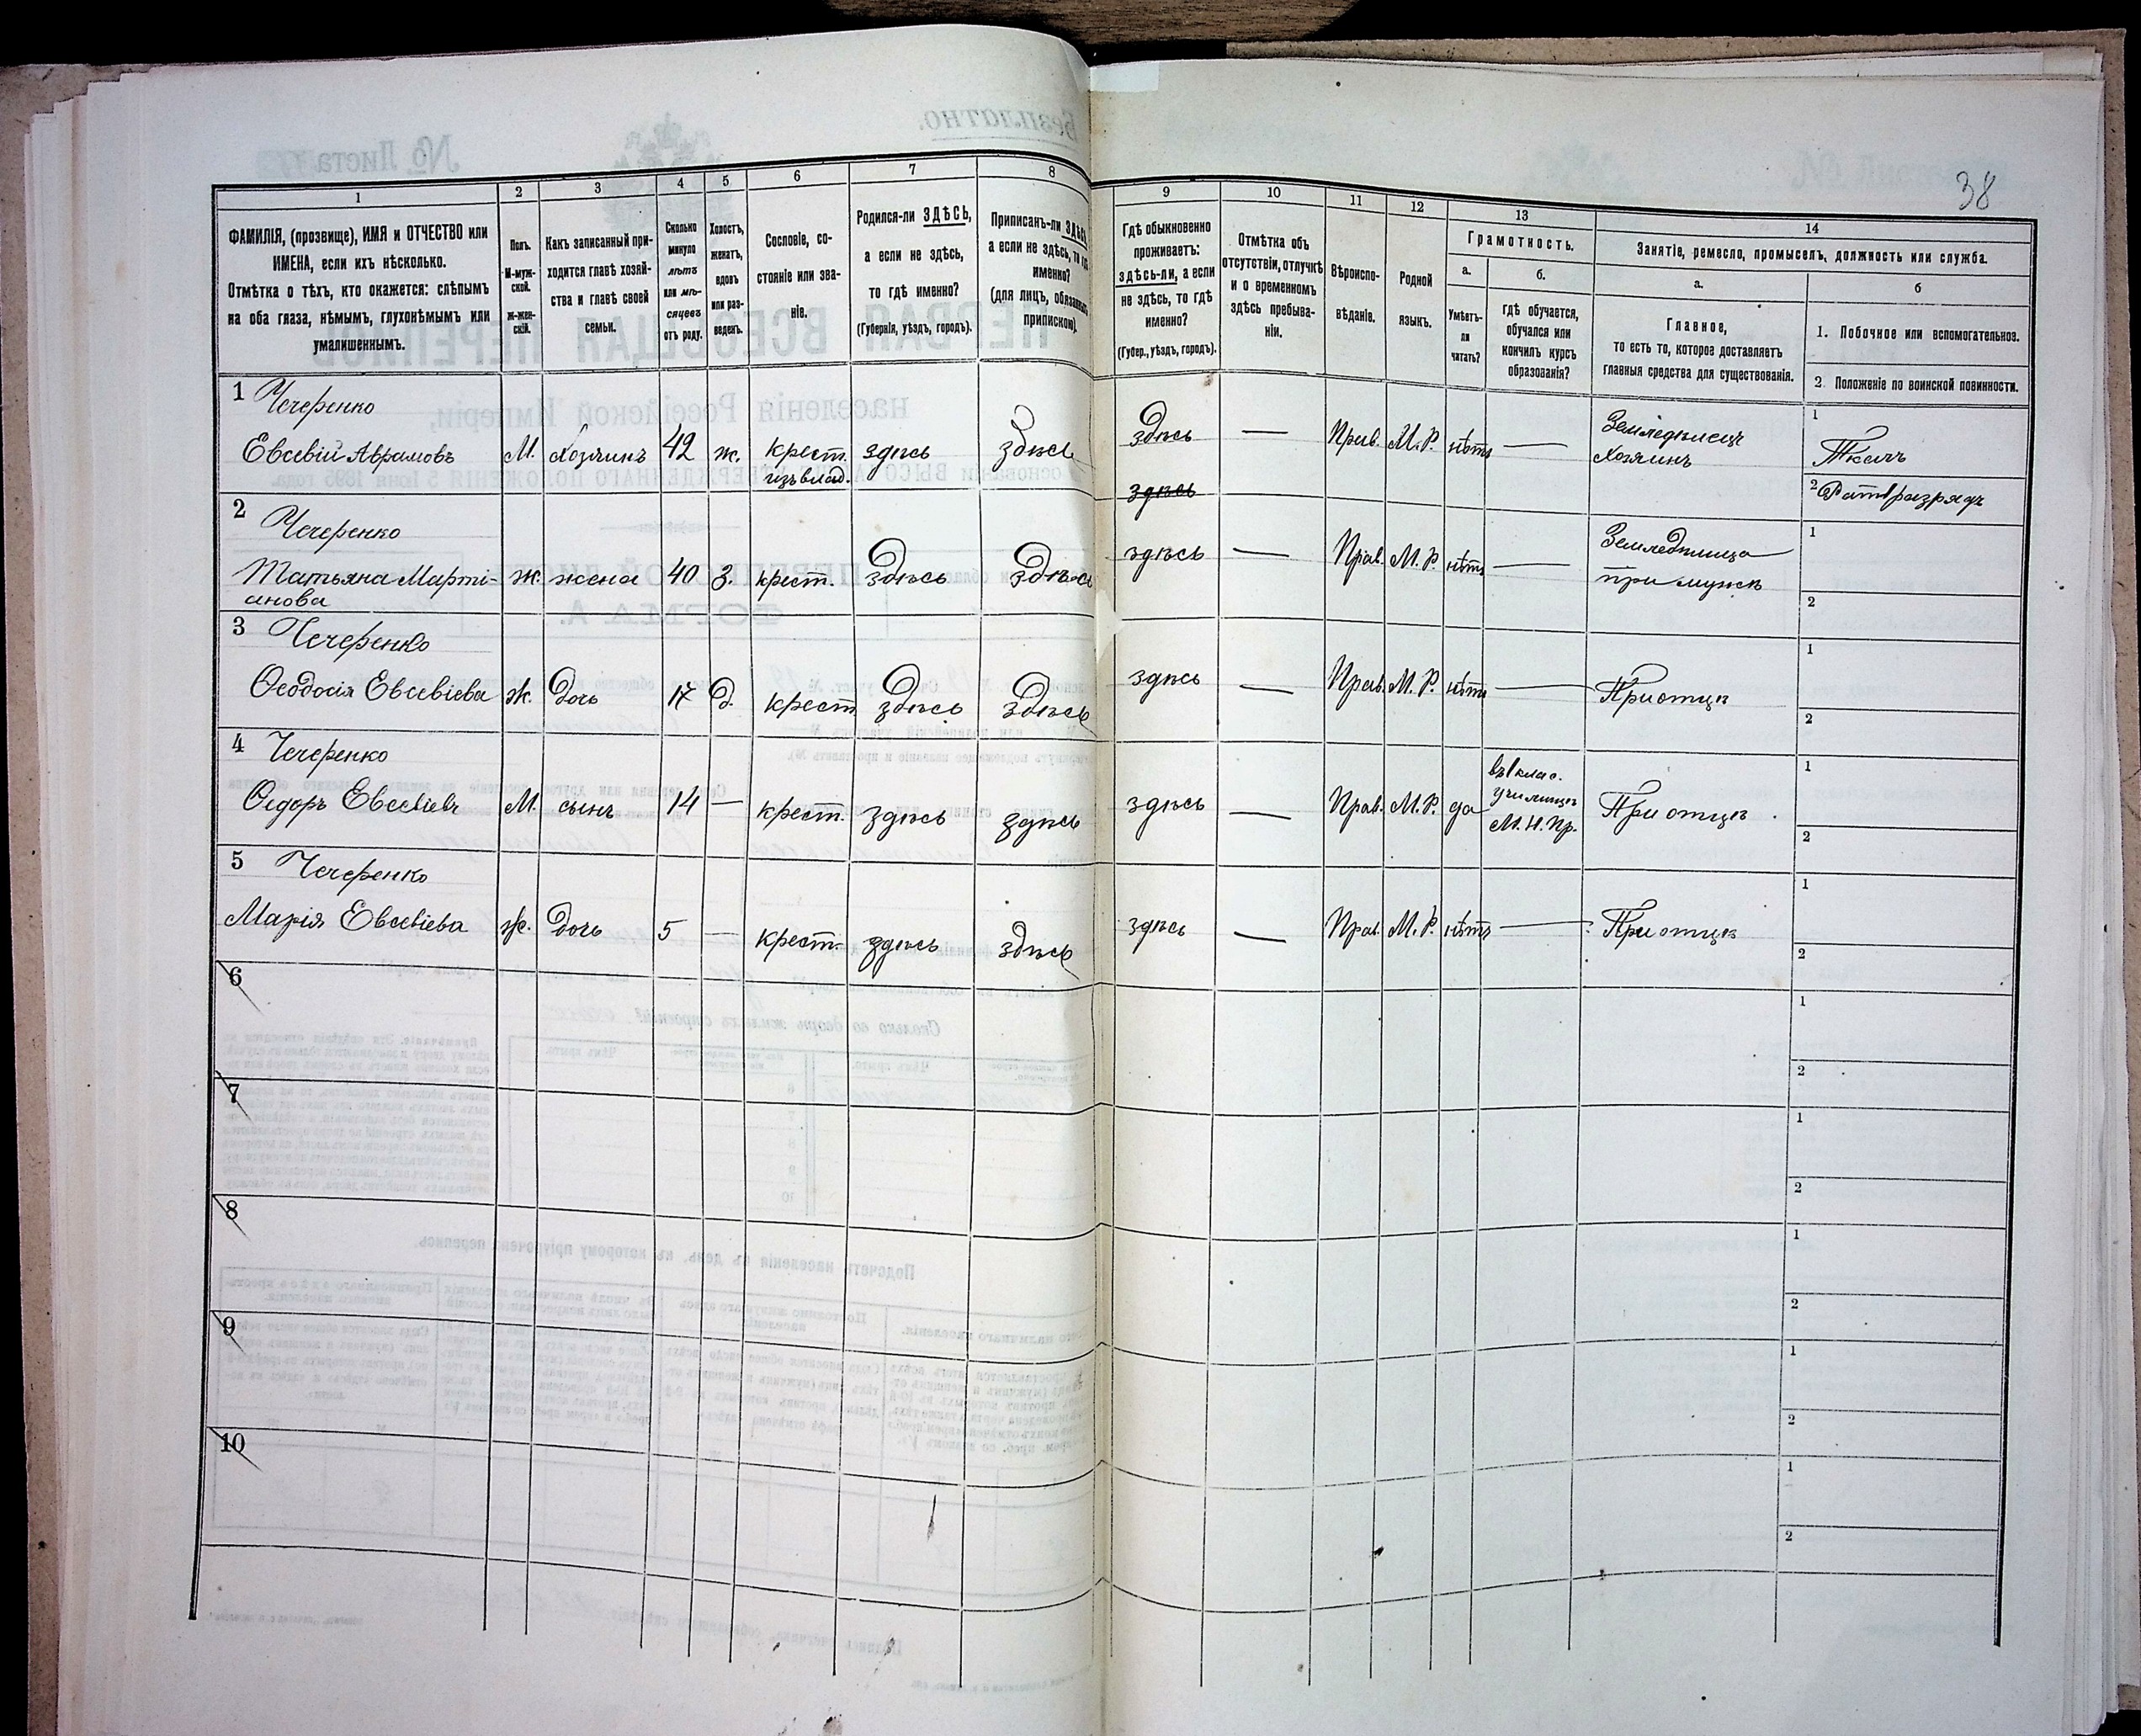 38
1
2
3
4
5
6
7
8
9
10
11
12
13
14
ФАМИЛІЯ, (прозвище), ИМЯ и ОТЧЕСТВО или
ИМЕНА, если ихъ нѣсколько.
Отмѣтка о тѣхъ, кто окажется: слѣпымъ
на оба глаза, нѣмымъ, глухонѣмымъ или
умалишеннымъ.
Полъ.
М-муж-
ской.
ж-жен-
скій.
Какъ записанный при-
ходится главѣ хозяй-
ства и главѣ своей
семьи.
Сколько
минуло
лѣтъ
или мѣ-
сяцевъ
отъ роду.
Холостъ,
женатъ,
вдовъ
или раз-
веденъ.
Сословіе, со-
стояніе или зва-
ніе.
Родился-ли ЗДѢСЬ,
а если не здѣсь,
то гдѣ именно?
(Губернія, уѣздъ, городъ).
Приписанъ-ли ЗДѢСЬ
а если не здѣсь, то гдѣ
именно?
(для лицъ, обязанныхъ
припискою).
Гдѣ обыкновенно
проживаетъ:
здѣсь-ли, а если
не здѣсь, то гдѣ
именно?
(Губер., уѣздъ, городъ).
Отмѣтка объ
отсутствіи, отлучкѣ
и о временномъ
здѣсь пребыва-
ніи.
Вѣроиспо-
вѣданіе.
Родной
языкъ.
Грамотность.
а.
б.
Умѣетъ-
ли
читать?
гдѣ обучается,
обучался или
кончилъ курсъ
образованія?
Занятіе, ремесло, промыселъ, должность или служба.
а.
б
Главное,
то есть то, которое доставляетъ
главныя средства для существованія.
1. Побочное или вспомогательное.
2. Положеніе по воинской повинности.
1 Чечеренко
Евсевій Аврамовъ М. Хозяинъ 42 ж. крест. здѣсь здѣсь здѣсь — Прав. М.Р. нѣтъ — Земледѣлецъ 1 Ткачъ
изъ влад. здѣсь Хозяинъ 2 Рат. 1 разрядъ
2 Чечеренко
Татьяна Марті- ж. жена 40 З. крест. здѣсь здѣсь здѣсь — Прав. М.Р. нѣтъ — Земледѣлица 1
анова при мужѣ 2
3 Чечеренко
Ѳеодосія Евсевіева Ж. Дочь 17 Д. крест. здѣсь здѣсь здѣсь — Прав. М.Р. нѣтъ — При отцѣ 1
2
4 Чечеренко
Ѳедоръ Евсевіевъ М. сынъ 14 — крест. здѣсь здѣсь здѣсь — Прав. М.Р. да въ 1 клас. При отцѣ 1
училищѣ
М.Н.Пр. 2
5 Чечеренко
Марія Евсевіева ж. Дочь 5 — крест. здѣсь здѣсь здѣсь — Прав. М.Р. нѣтъ — При отцѣ 1
2
6 1
2
7 1
2
8 1
2
9 1
2
10 1
2